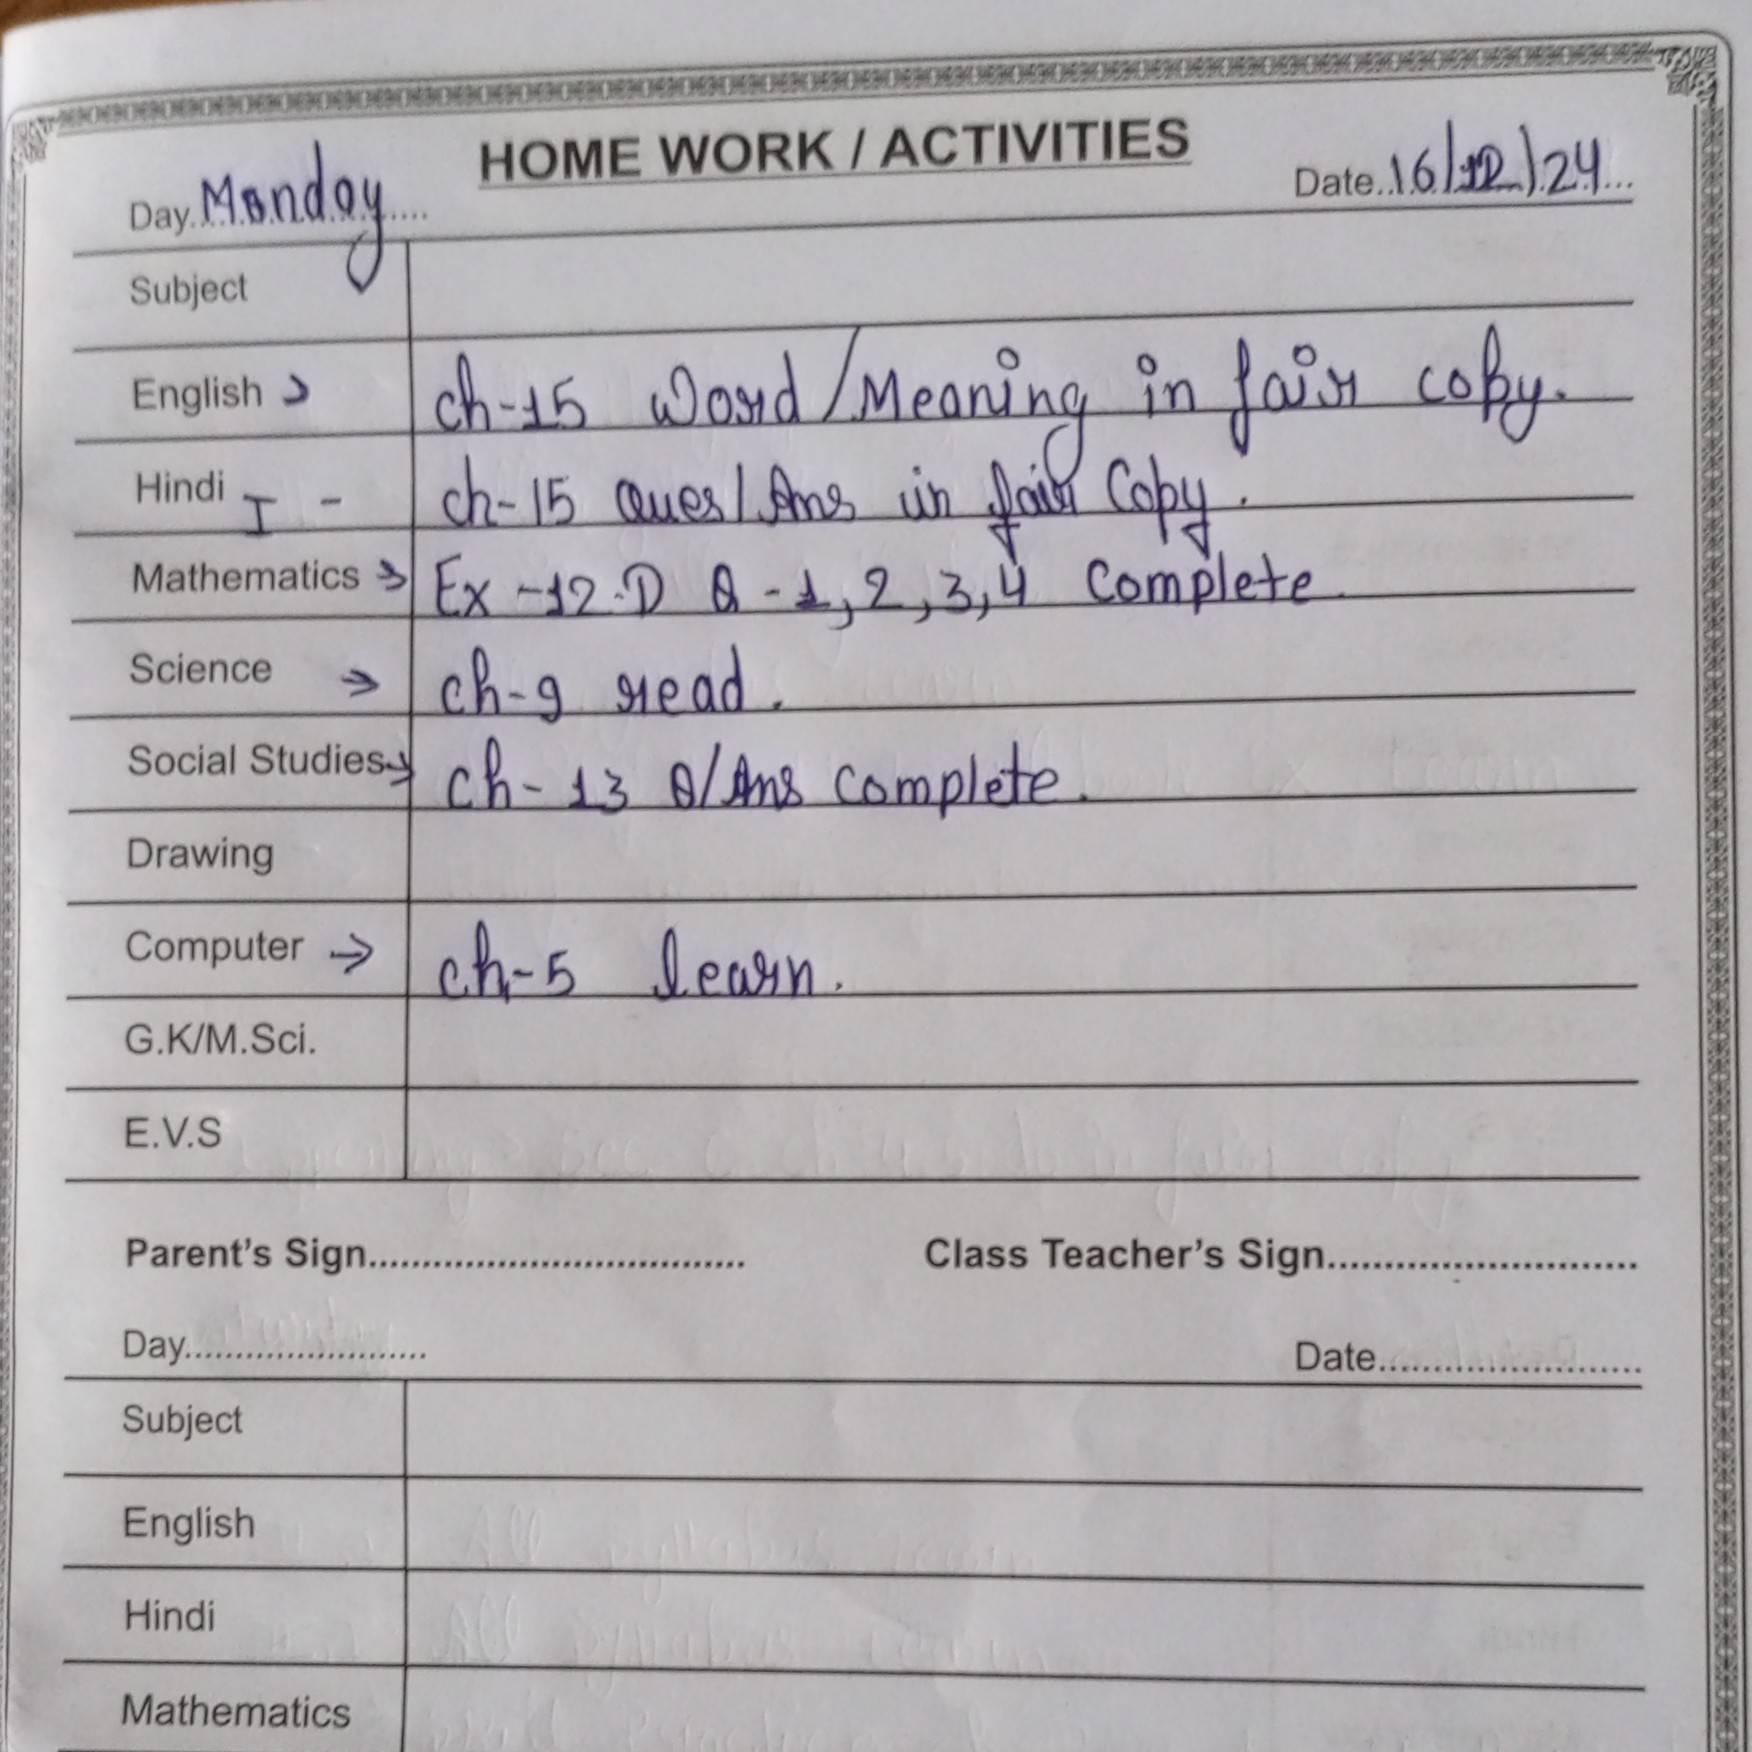 HOME WORK / ACTIVITIES
Day. Monday.... Date..16/12/24...
Subject
English → ch-15 Word/Meaning in fair copy.
Hindi I - ch-15 Ques/Ans in fair Copy.
Mathematics → Ex-12.D Q-1,2,3,4 Complete.
Science → ch-9 read.
Social Studies → ch-13 Q/Ans complete.
Drawing
Computer → ch-5 learn.
G.K/M.Sci.
E.V.S
Parent's Sign.................................... Class Teacher's Sign..............................
Day........................ Date.........................
Subject
English
Hindi
Mathematics